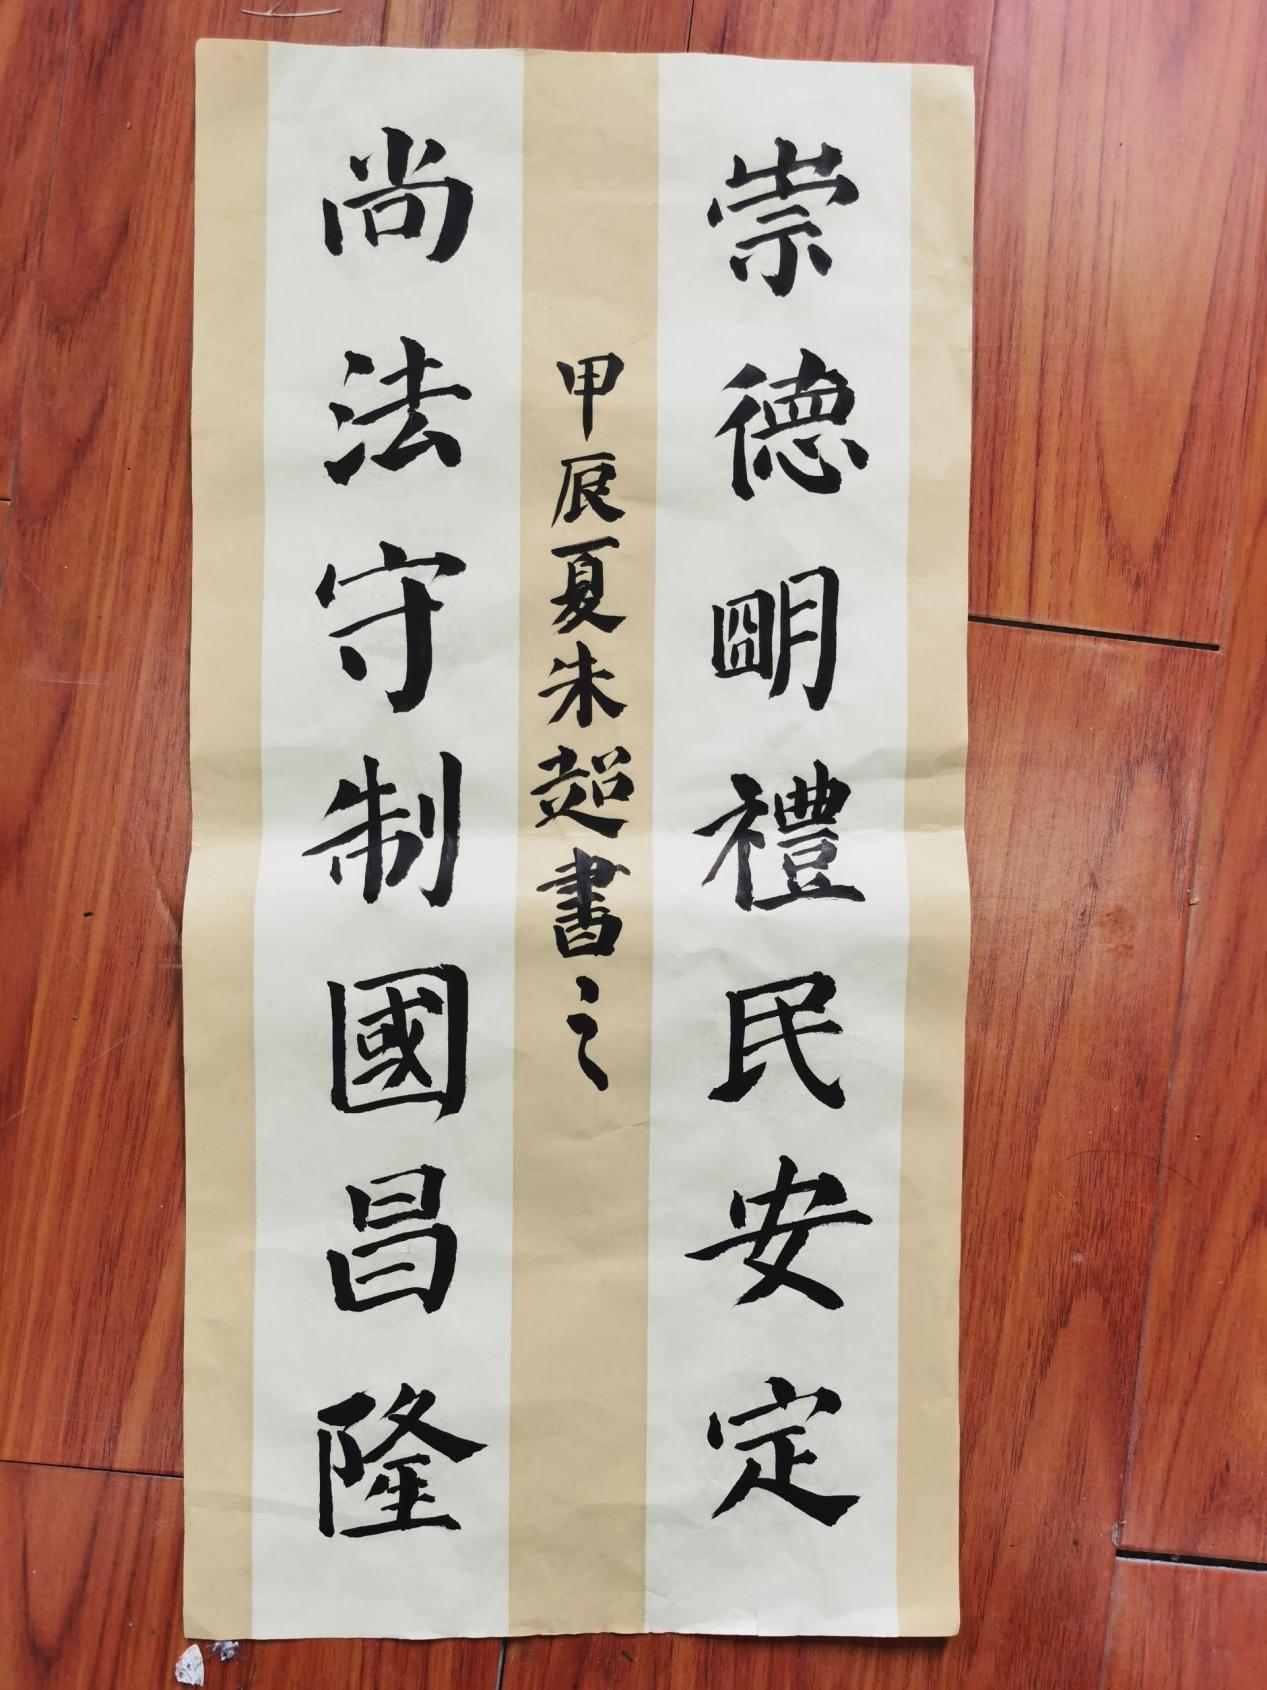 崇德明禮民安定
尚法守制國昌隆
甲辰夏朱超書之